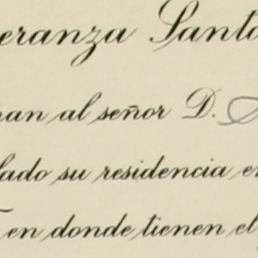 eranza Santo
an al señor D.
lado su residencia e
en donde tienen el